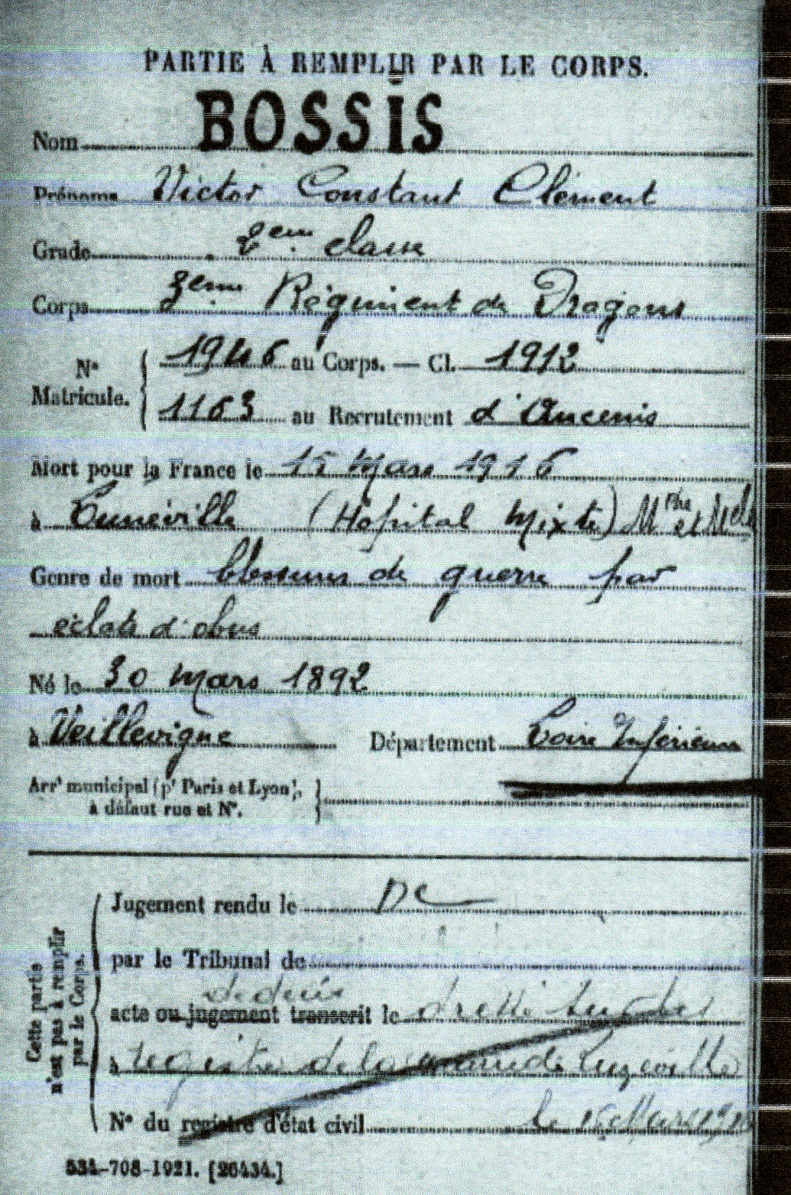 PARTIE À REMPLIR PAR LE CORPS.
Nom BOSSIS
Prénoms Victor Constant Clément
Grade 2em classe
Corps 3eme Régiment de Dragons
No Matricule. 1946 au Corps. — Cl. 1912
1163 au Recrutement d'Ancenis
Mort pour la France le 15 Mars 1916
à Lunéville (Hopital Mixte) Mthe et Mlle
Genre de mort blessures de guerre par
éclats d'obus
Né le 30 Mars 1892
à Veillevigne Département Loire Inférieure
Arrt municipal (pr Paris et Lyon), à défaut rue et No.
Cette partie n'est pas à remplir par le Corps.
Jugement rendu le
par le Tribunal de
de décès
acte ou jugement transcrit le
à registre de la mairie de Lunéville
No du registre d'état civil le 16 Mars 1916
534-708-1921. [26434.]